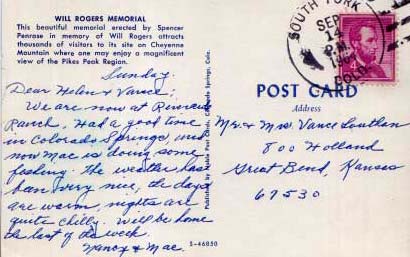 WILL ROGERS MEMORIAL
This beautiful memorial erected by Spencer
Penrose in memory of Will Rogers attracts
thousands of visitors to its site on Cheyenne
Mountain where one may enjoy a magnificent
view of the Pikes Peak Region.
Sunday.
Dear Helen & Vance;
We are now at Riverside
Ranch, Had a good time
in Colorado Springs, and
now Mac is doing some
fishing. The weather has
been very nice, the days
are warm, nights are
quite chilly. Will be home
the last of the week.
Nancy & Mac.
Published by Noble Post Cards, Colorado Springs, Colo.
S-46850
SOUTH YORK
SEP
14
P.M.
COLO.
POST CARD
Address
Mr. & Mrs. Vance Southan
800 Holland
Great Bend, Kansas
67530